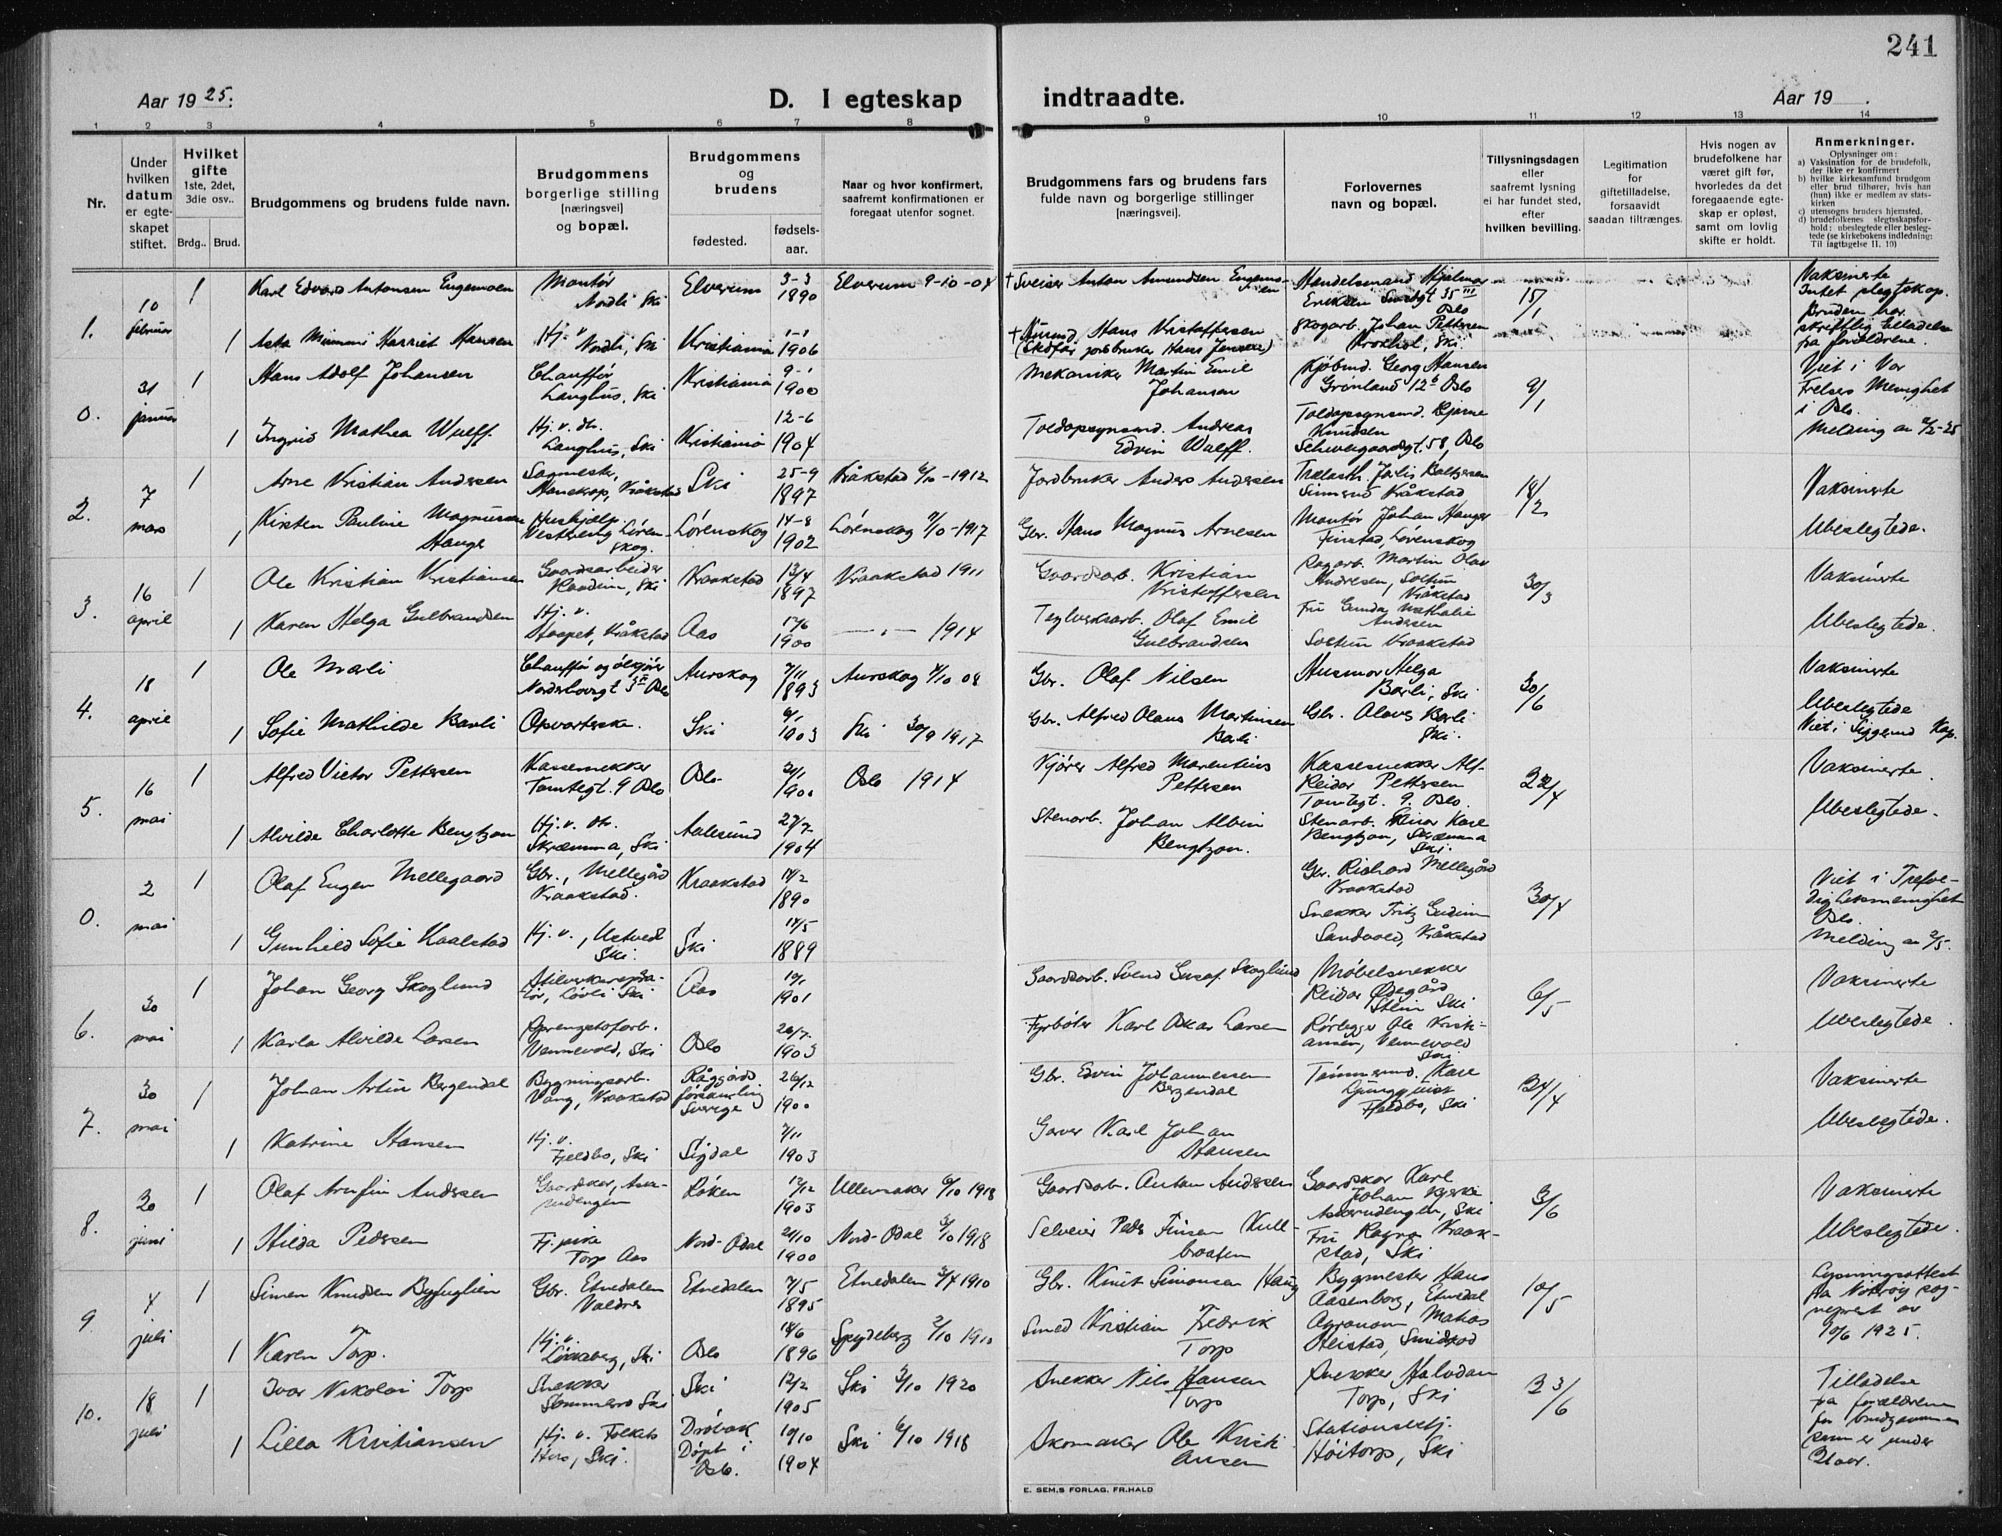 241
Aar 1925.
D. I egteskap indtraadte.
Aar 19 .
1 2 3 4 5 6 7 8 9 10 11 12 13 14
Nr.
Under hvilken datum er egte-skapet stiftet.
Hvilket gifte 1ste, 2det, 3die osv..
Brdg.. Brud.
Brudgommens og brudens fulde navn.
Brudgommens borgerlige stilling [næringsvei] og bopæl.
Brudgommens og brudens
fødested. fødsels-aar.
Naar og hvor konfirmert, saafremt konfirmationen er foregaat utenfor sognet.
Brudgommens fars og brudens fars fulde navn og borgerlige stillinger [næringsvei].
Forlovernes navn og bopæl.
Tillysningsdagen eller saafremt lysning ei har fundet sted, efter hvilken bevilling.
Legitimation for giftetilladelse, forsaavidt saadan tiltrænges.
Hvis nogen av brudefolkene har været gift før, hvorledes da det foregaaende egte-skap er opløst, samt om lovlig skifte er holdt.
Anmerkninger.
Oplysninger om:
a) Vaksination for de brudefolk, der ikke er konfirmert
b) hvilke kirkesamfund brudgom eller brud tilhører, hvis han (hun) ikke er medlem av stats-kirken
c) utensogns bruders hjemsted.
d) brudefolkenes slegtsskapsfor-hold: ubeslegtede eller besleg-tede (se kirkebokens indledning: Til iagttagelse II. 10)
1. 10 februar 1 Karl Edvard Antonsen Engemoen Montør Nordli Ski Elverum 3-3 1890 Elverum 9-10-04 † Sveiser Anton Amundsen Engemoen Handelsmand Hjalmar Eriksen 35 III Oslo 15/1 Vaksinerte Intet slegtskap. Bruden har skriftlig tiladelse fra forældrene.
1 Asta Mimmi Harriet Hansen Hj. v Nordli, Ski Kristiania 1-1 1906 † Hans Kristoffersen (Stedfar jordbruker Hans Jensen) Skogarb. Johan Pettersen Kroxhol, Ski
0. 31 januar 1 Hans Adolf Johansen Chauffør Langhus, Ski Kristiania 9-1 1900 Mekaniker Martin Emil Johansen Kjøbmd. Georg Hansen Grønland 12 b Oslo 9/1 Viet i Vor Frelsers Menighet i Oslo. Melding av 2/2-25
1 Ingrid Mathea Wulff Hj. v. dtr. Langhus, Ski Kristiania 12-6 1904 Toldopsynsmd. Andreas Edvin Wulff. Toldopsynsmd. Bjarne Knudsen Schweigaardsgt. 58, Oslo
2. 7 mars 1 Arne Kristian Andersen Sagmest. Kråkstad Ski 25-9 1897 Kråkstad 6/10-1912 Jordbruker Anders Andersen Kråkstad 14/2 Vaksinerte
1 Kirsten Pauline Magnussen Hauge Hushjælp Vestvang Lørenskog. Lørenskog 14-8 1902 Lørenskog 7/10-1917 Gbr. Hans Magnus Arnesen Montør Johan Hauger Finstad, Lørenskog Ubeslegtede.
3. 16 april 1 Ole Kristian Kristiansen Gaardsarbeider Ski Kraakstad 13/4 1897 Kraakstad 1911 Gaardsarb. Kristian Kristoffersen Martin Olav Andresen, Soltun Kråkstad 30/3 Vaksinerte
1 Karen Helga Gulbrandsen Hj. v. Stoppet, Kråkstad Aas 17/6 1900 —„— 1914 Teglverksarb. Olaf Emil Gulbrandsen Fru Gunda Mathalie Andersen Soltun Kraakstad Ubeslegtede.
4. 18 april 1 Ole Mærli Chauffør og ølkjører Nordahlbrungt 3 II Oslo Aurskog 7/11 1893 Aurskog 4/10 08 Gbr. Olaf Nilsen Husmor Helga Barli, Ski 30/6 Vaksinerte
1 Sofie Mathilde Barli Opvarterske. Ski 6/1 1903 Ski 30/9 1917 Gbr. Alfred Olaus Martinsen Barli Gbr. Olaves Barli Ski. Ubeslegtede Viet i Siggerud Kap.
5. 16 mai 1 Alfred Victor Pettersen Kassesnekker Tomtegt. 9 Oslo Oslo 21/1 1900 Oslo 1914 Kjører Alfred Marentius Pettersen Kassesnekker Alf Reidar Pettersen Tomtegt. 9. Oslo. 22/4 Vaksinerte.
1 Alvilde Charlotte Bengtzon Hj. v. dtr. Skræmma, Ski Aalesund 27/7 1904 Stenarb. Johan Albin Bengtzon. Stenarb. Einar Kare Bengtzon, Skræmma Ski. Ubeslegtede.
0. 2 mai 1 Olaf Eugen Mellegaard Gbr., Mellegård Kraakstad. Kraakstad 14/2 1890 Gbr. Richard Mellegård Kraakstad 30/4 Viet i Trefoldighetsmenighet Oslo. Melding av 2/5.
1 Gunhild Sofie Haalstad Hj. v., Ustvedt Ski. Ski 14/5 1889 Snekker Fritz Gudim Sandvold, Kråkstad
6. 30 mai 1 Johan Georg Skoglund Løvli Ski Aas 10/1 1901 Gaardsarb. Svend Gustaf Skoglund Møbelsnekker Reidar Ødegård Stein Ski 6/5 Vaksinerte
1 Karla Alvilde Larsen Sprengstofarb. Vennevold, Ski Oslo 26/7 1903 Fyrbøter Karl Oskar Larsen Rørlegger Ole Kristiansen, Vennevold Ski Ubeslegtede.
7. 30 mai 1 Johan Artur Bergendal Bygningsarb. Vang, Kraakstad Råggärds församling Sverige 26/12 1900 Gbr. Edvin Johannessen Bergendal Tømmermd. Kare Ljungquist Fjeldbo, Ski 24/4 Vaksinerte
1 Katrine Hansen Hj. v. Fjeldbo, Ski Sigdal 7/11 1903 Garver Karl Johan Hansen Ubeslegtede.
8. 20 juni 1 Olaf Arnfin Andersen Gaardskar, Løken 17/12 1903 Ullensaker 6/10 1918 Gaardsarb. Anton Andersen Gaardskar Karl Johan Bjerke Ski 3/6 Vaksinerte
1 Hilda Pedersen Tj. pike Torp Aas Nord-Odal 24/10 1900 Nord-Odal 3/10 1918 Selveier Peder Finsen Kullbraaten Fru Ragna Kraakstad, Ski Ubeslegtede.
9 4 juli 1 Simen Knudsen Byfuglien Gbr. Etnedalen Valdres Etnedalen 7/5 1895 Etnedalen 3/7 1910 Gbr. Knut Simonsen Haug Bygmester Hans Aasenborg, Etnedal 10/5 Lysningsattest fra Nøtterøy sogneprest av 10/6 1925.
1 Karen Torp. Hj. v. Ski Oslo 14/6 1896 Spydeberg 2/10 1910 Smed Kristian Fredrik Torp Agronom Matias
10. 18 juli 1 Ivar Nikolai Torp Snekker Sommero Ski Ski 12/2 1905 Ski 3/10 1920 Snekker Nils Hansen Torp Snekker Halvdan Torp, Ski 23/6 Tilladelse fra forældrene for brudgommen som er under 21 aar.
1 Lilla Kristiansen Hj. v. Folkets Hus, Ski. Drøbak Døpt i Oslo. 10/10 1904 Ski 6/10 1918 Skomaker Ole Kristiansen Stationsbetj. Høitorp, Ski
E. SEM,S FORLAG, FR.HALD